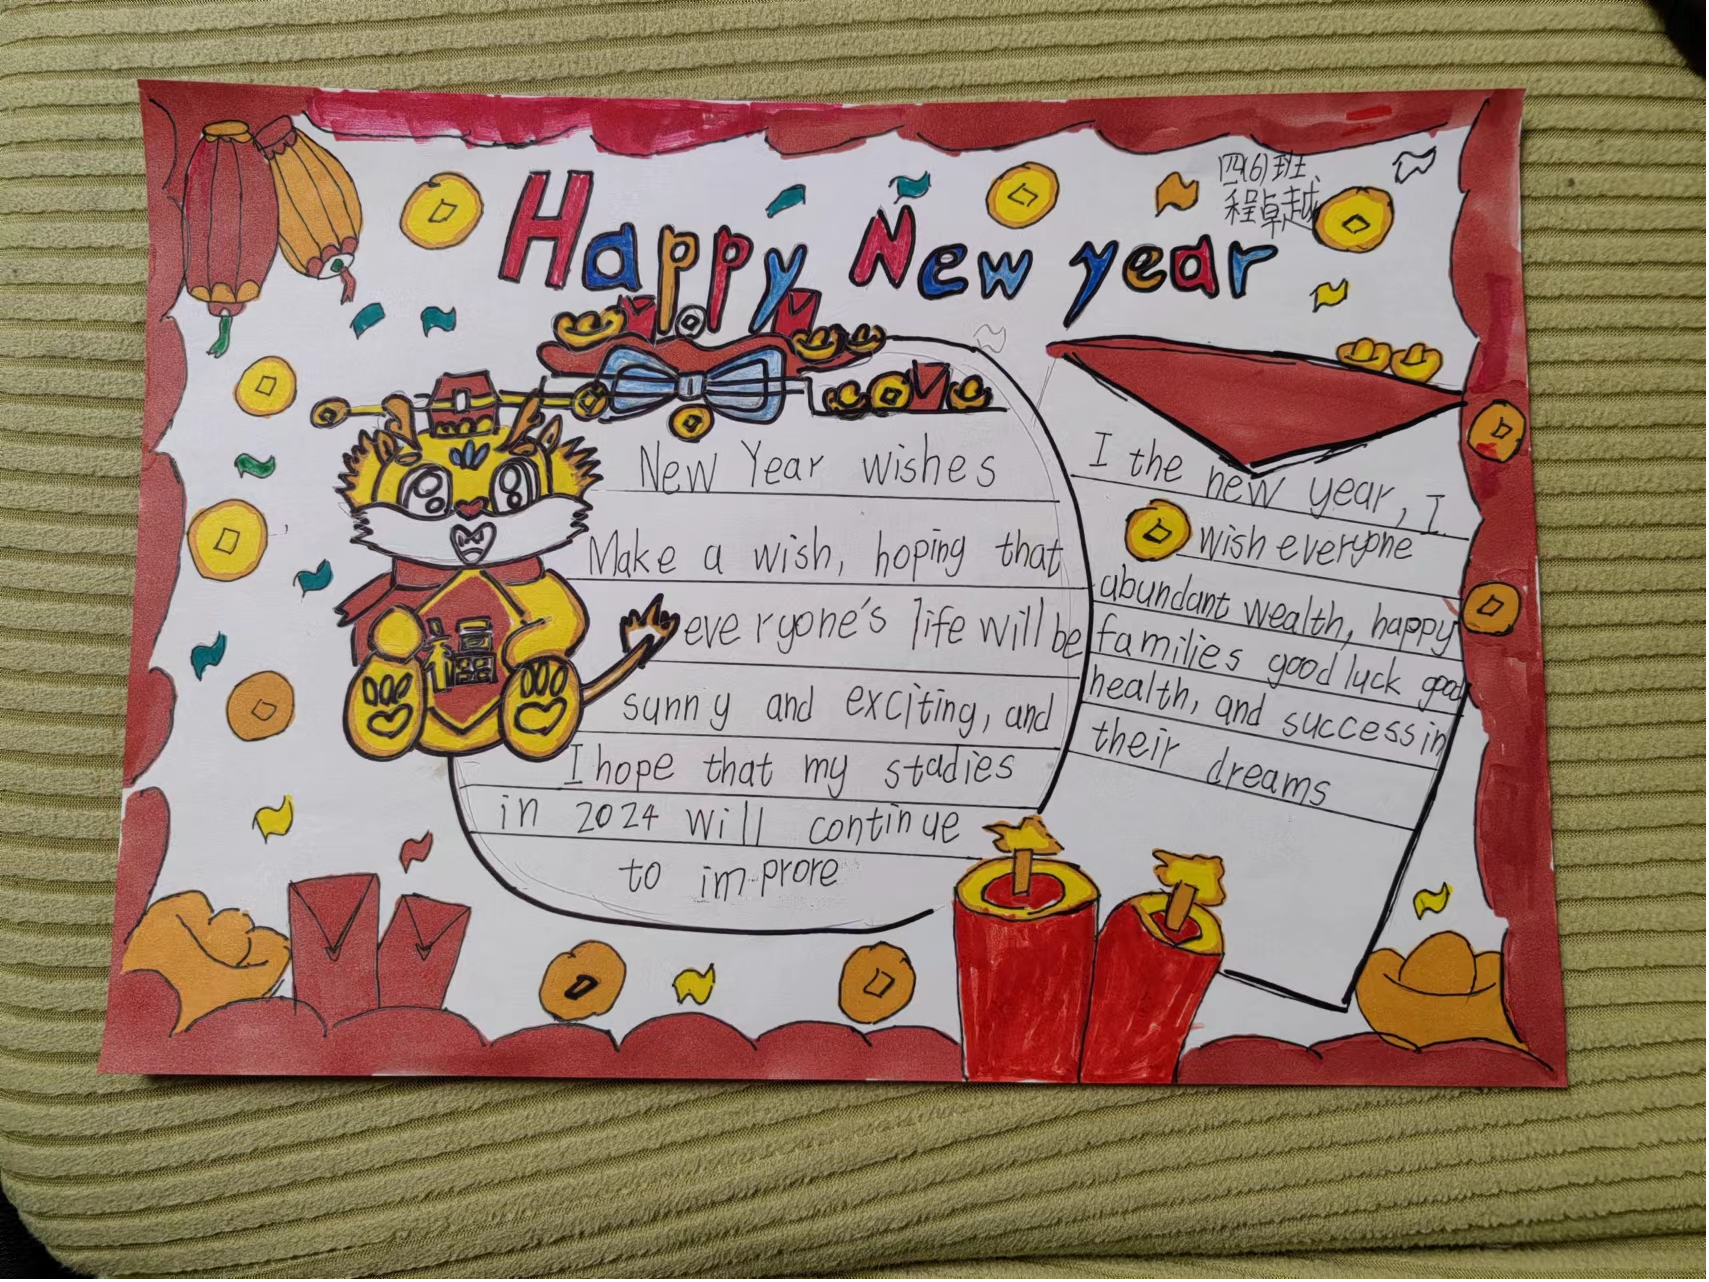 Happy New year
四(6)班
程卓越
New Year wishes
Make a wish, hoping that
everyone's life will be
sunny and exciting, and
I hope that my stadies
in 2024 will continue
to im-prore
I the new year, I
wish everyone
abundant wealth, happy
families good luck good
health, and success in
their dreams
福